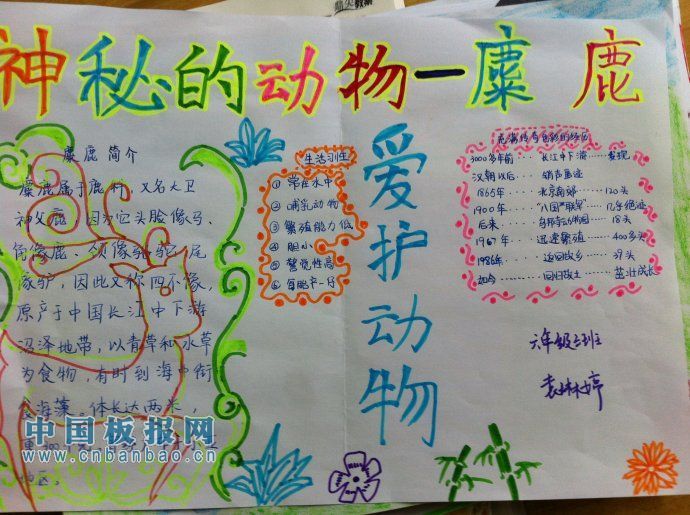 神秘的动物一麋鹿
麋鹿简介
麋鹿属于鹿科，又名大卫
神父鹿，因为它头脸像马、
角像鹿、颈像骆驼、尾
像驴，因此又称四不像，
原产于中国长江中下游
沼泽地带，以青草和水草
为食物，有时到海中衔
食海藻。体长达两米，
地区。
生活习性
① 常在水中
② 哺乳动物
③ 繁殖能力低
④ 胆小
⑤ 警觉性高
⑥ 每胎产一仔
爱护动物
充满传奇色彩的经历
3000多年前····长江中下游······发现
汉朝以后····销声匿迹
1865年·····北京南郊·····120头
1900年····"八国联军"····几乎绝迹
后来·····乌邦寺动物园····18头
1967年····迅速繁殖·····400多头
1986年·····返回故乡·····39头
如今·····回归故土·····茁壮成长
六年级三班
袁林婷
中国板报网
www.cnbanbao.cn